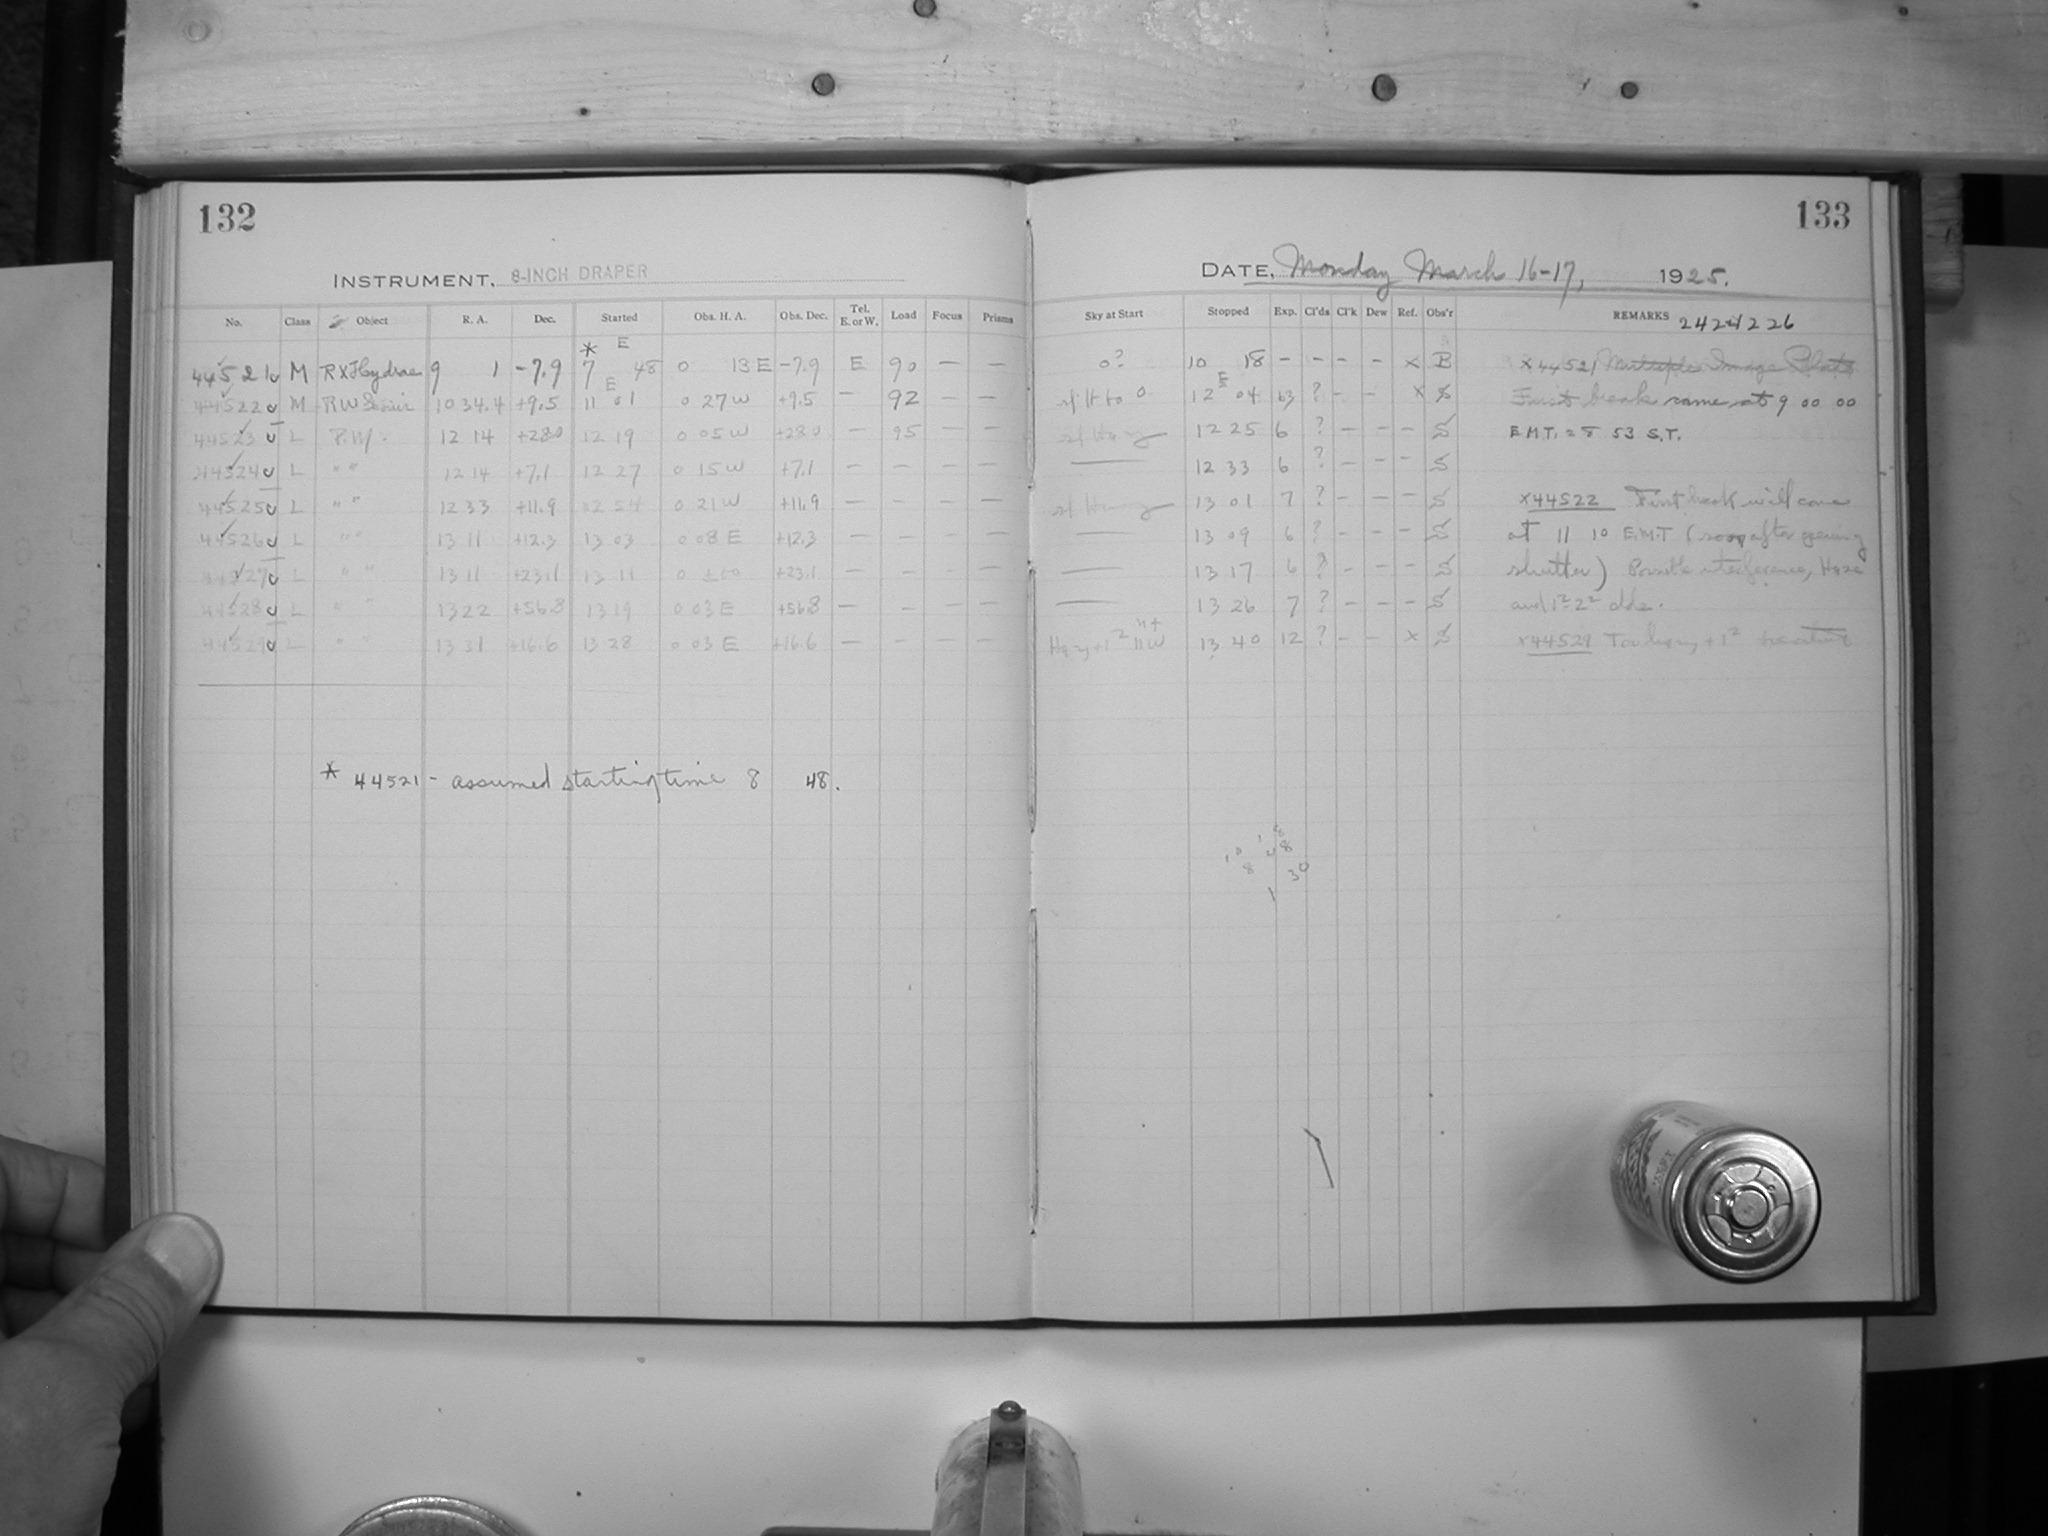 132
INSTRUMENT, 8-INCH DRAPER
No. Class Object R. A. Dec. Started Obs. H. A. Obs. Dec. Tel. E. or W. Load Focus Prisms
44521 M RX Hydrae 9 1 -7.9 * 7 E 48 0 13 E -7.9 E 90 — —
44522 M RW 10 34.4 +9.5 11 E 01 0 27 W +9.5 — 92 — —
44523 L 12 14 +28.0 12 19 0 05 W +28.0 — 95 — —
44524 L " " 12 14 +7.1 12 27 0 15 W +7.1 — — — —
44525 L " " 12 33 +11.9 12 54 0 21 W +11.9 — — — —
44526 L " " 13 11 +12.3 13 03 0 08 E +12.3 — — — —
44527 L " " 13 11 +23.1 13 11 0 +23.1 — — — —
44528 L " " 13 22 +56.8 13 19 0 03 E +56.8 — — — —
44529 L " " 13 31 +16.6 13 28 0 03 E +16.6 — — — —
* 44521 - assumed starting time 8 48.
133
DATE, Monday March 16-17, 1925.
Sky at Start Stopped Exp. Cl'ds Cl'k Dew Ref. Obs'r REMARKS 2424226
0? 10 18 - - - - x B x 44521 Multiple Image Plate
12 E 04 63 ? - - x S First break came at 9 00 00
12 25 6 ? - - - S E.M.T. = 8 53 S.T.
— 12 33 6 ? - - - S
13 01 7 ? - - - S x 44522 First break will come
— 13 09 6 ? - - - S at 11 10 E.M.T (soon after opening
— 13 17 6 ? - - - S shutter) Possible interference, Haze
— 13 26 7 ? - - - S and
13 40 12 ? - - x S x 44529 Too hazy +